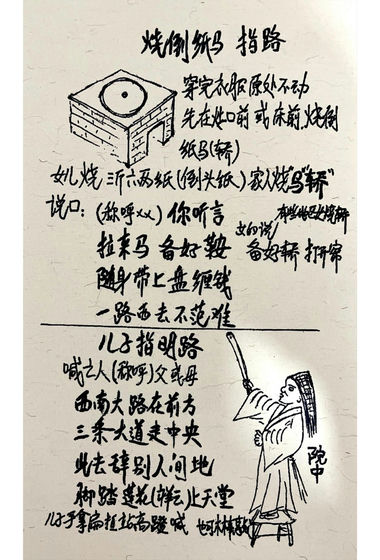 烧倒纸马 指路
穿完衣服原处不动
先在灶口前 或床前,烧倒
纸马(轿)
女儿烧 三斤六两纸(倒头纸) 家人烧马"轿"
说口: (称呼xx) 你听言
拉来马 备好鞍
女的说/
备好轿 打开帘
随身带上盘缠钱
一路西去不范难
儿子指明路
喊亡人(称呼)父或母
西南大路在前方
三条大道走中央
此去辞别人间地
脚踏莲花(祥云)上天堂
儿子手拿扁担站高凳喊
院中